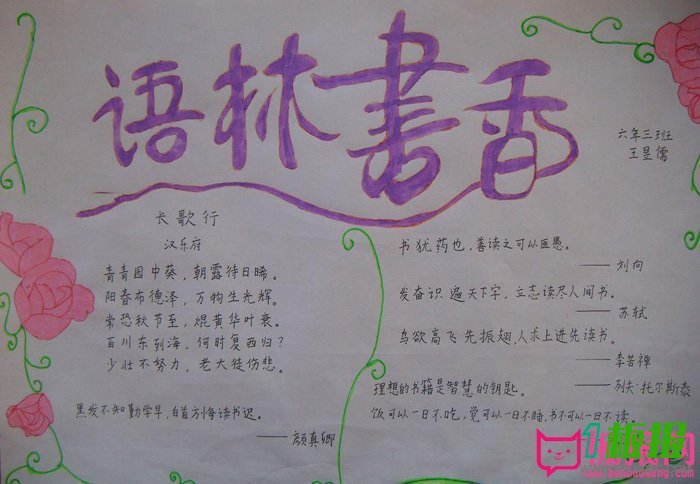 语林书香
六年三班
王昱儒
长歌行
汉乐府
青青园中葵，朝露待日晞。
阳春布德泽，万物生光辉。
常恐秋节至，焜黄华叶衰。
百川东到海，何时复西归？
少壮不努力，老大徒伤悲。
黑发不知勤学早，白首方悔读书迟。
——颜真卿
书犹药也，善读之可以医愚。
——刘向
发奋识遍天下字，立志读尽人间书。
——苏轼
鸟欲高飞先振翅，人求上进先读书。
——李苦禅
理想的书籍是智慧的钥匙。
——列夫·托尔斯泰
饭可以一日不吃，觉可以一日不睡，书不可以一日不读。